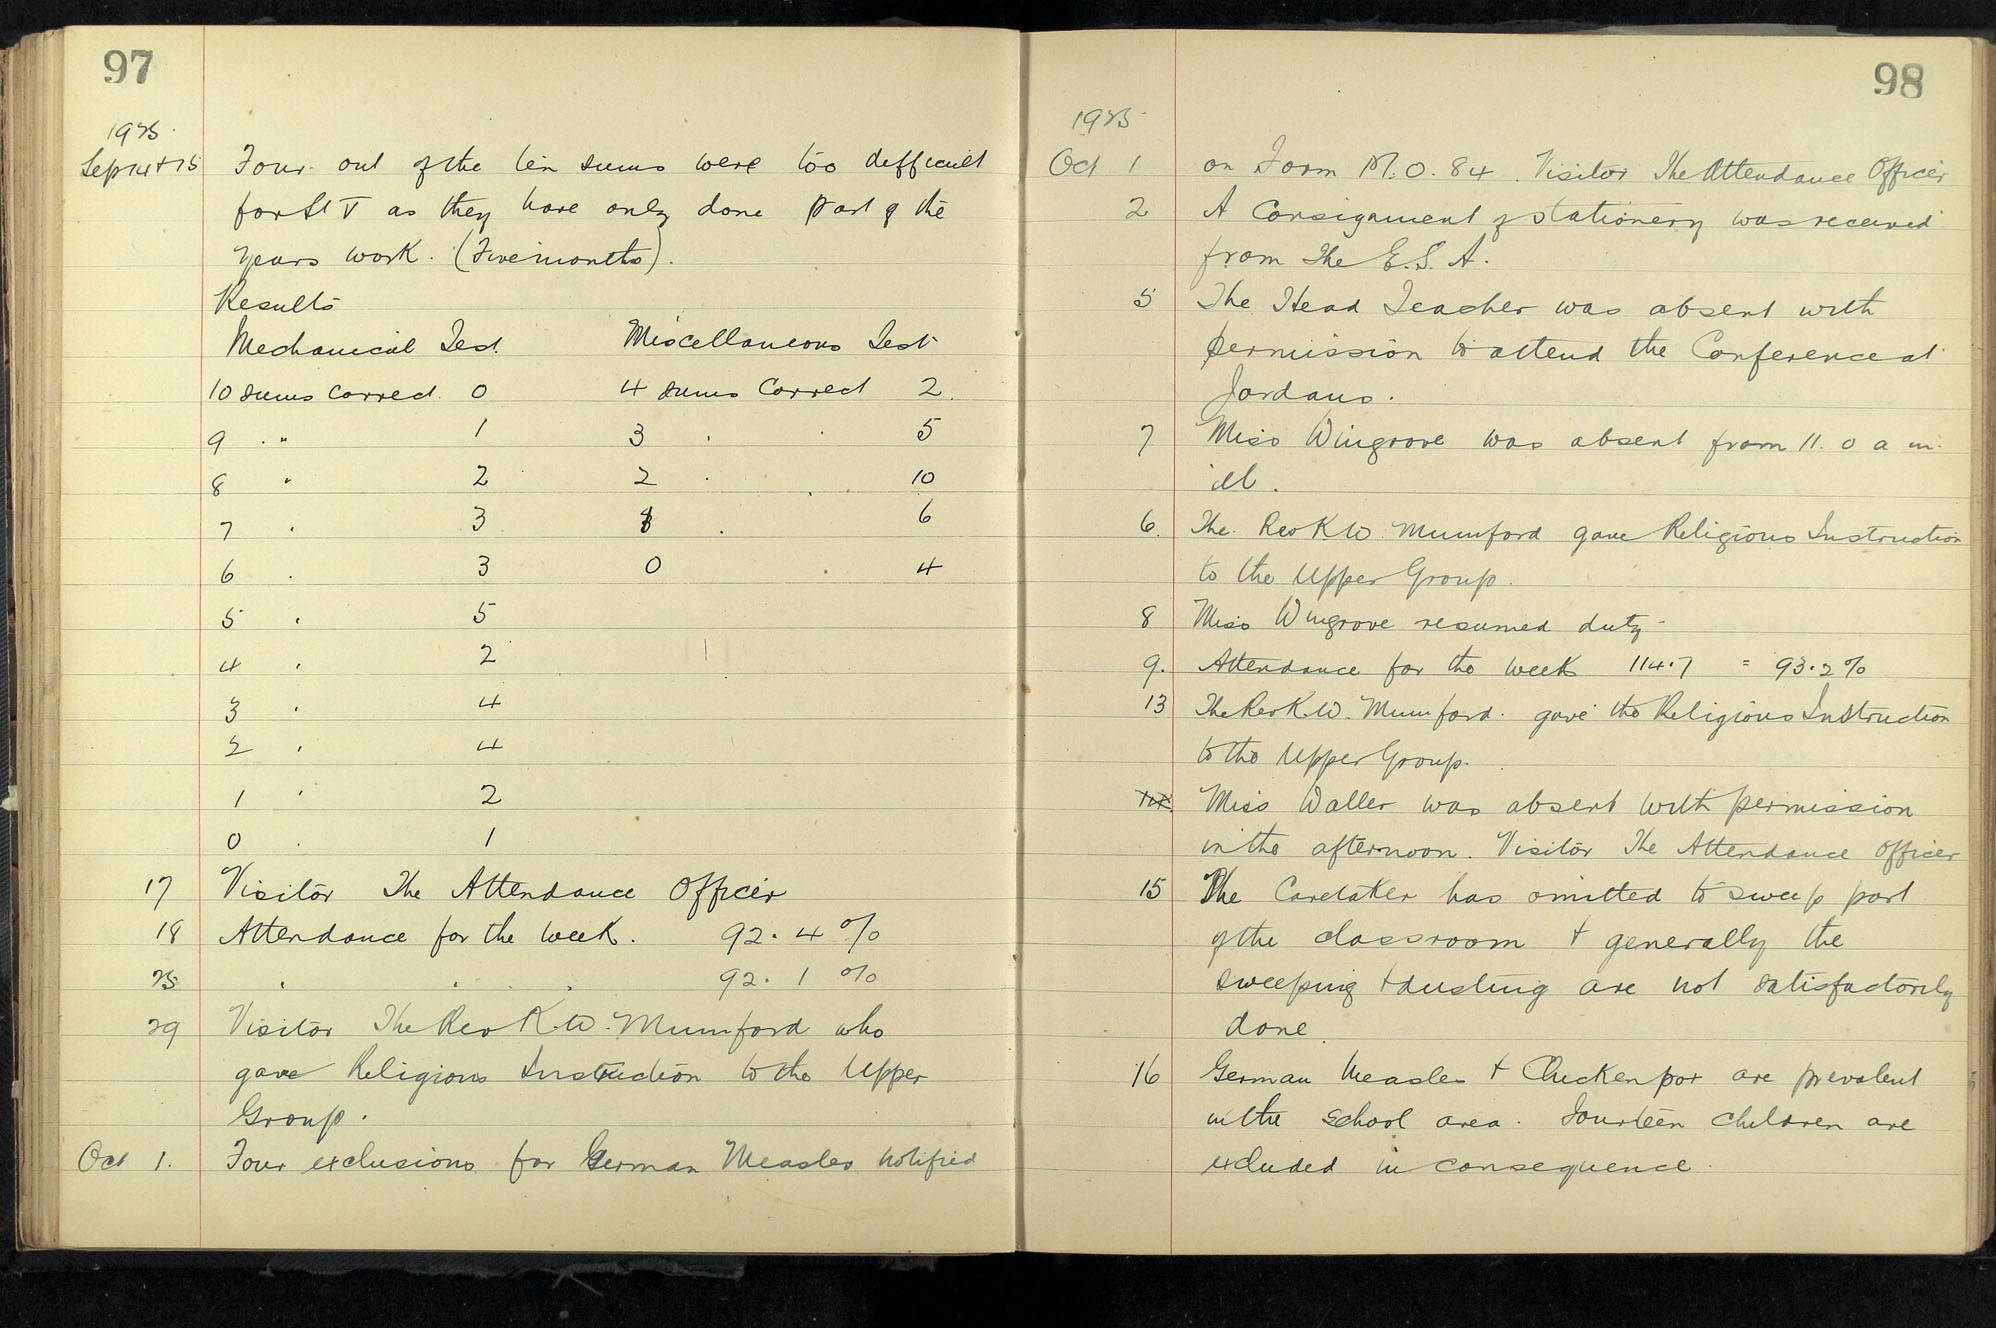 97
1925
Sep 14 + 15 Four out of the ten sums were too difficult
for St V as they have only done part of the
years work. (Five months).
Results
Mechanical Test. Miscellaneous Test
10 sums correct. 0 4 sums correct 2.
9 . " 1 3 . . 5
8 " 2 2 . . 10
7 . 3 1 . 6
6 . 3 0 . 4
5 . 5
4 . 2
3 . 4
2 . 4
1 . 2
0 . 1
17 Visitor The Attendance Officer
18 Attendance for the week. 92.4 %
25 . . . 92.1 %
29 Visitor The Rev K.W. Mumford who
gave Religious Instruction to the Upper
Group.
Oct 1. Four exclusions for German Measles notified
98
1925
Oct 1 on Form M.O. 84. Visitor The Attendance Officer
2 A consignment of stationery was received
from The E.S.A.
5 The Head Teacher was absent with
permission to attend the Conference at
Jordans.
7 Miss Wingrove was absent from 11.0 a m.
ill.
6. The Rev K W. Mumford gave Religious Instruction
to the Upper Group.
8 Miss Wingrove resumed duty
9. Attendance for the week 114.7 = 93.2%
13 The Rev K.W. Mumford. gave the Religious Instruction
to the Upper Group.
14. Miss Waller was absent with permission
in the afternoon. Visitor The Attendance Officer
15 The Caretaker has omitted to sweep part
of the classroom + generally the
sweeping + dusting are not satisfactorily
done.
16 German Measles + Chicken pox are prevalent
in the school area. Fourteen children are
excluded in consequence.